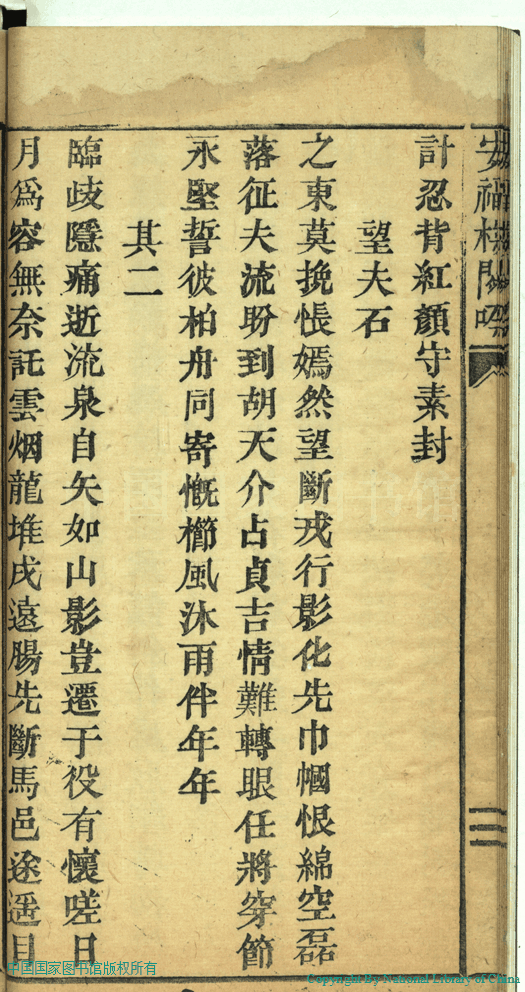 計忍背紅顏守素封
望夫石
之東莫挽悵嫣然望斷戎行影化先巾幗恨綿空磊
落征夫流盼到胡天介占貞吉情難轉眼任將穿節
永堅誓彼柏舟同寄慨櫛風沐雨伴年年
其二
臨歧隱痛逝流泉自矢如山影豈遷于役有懷嗟日
月爲容無奈託雲烟龍堆戍遠腸先斷馬邑途遥目
安福
三
中国国家图书馆版权所有
Copyright By National Library of China